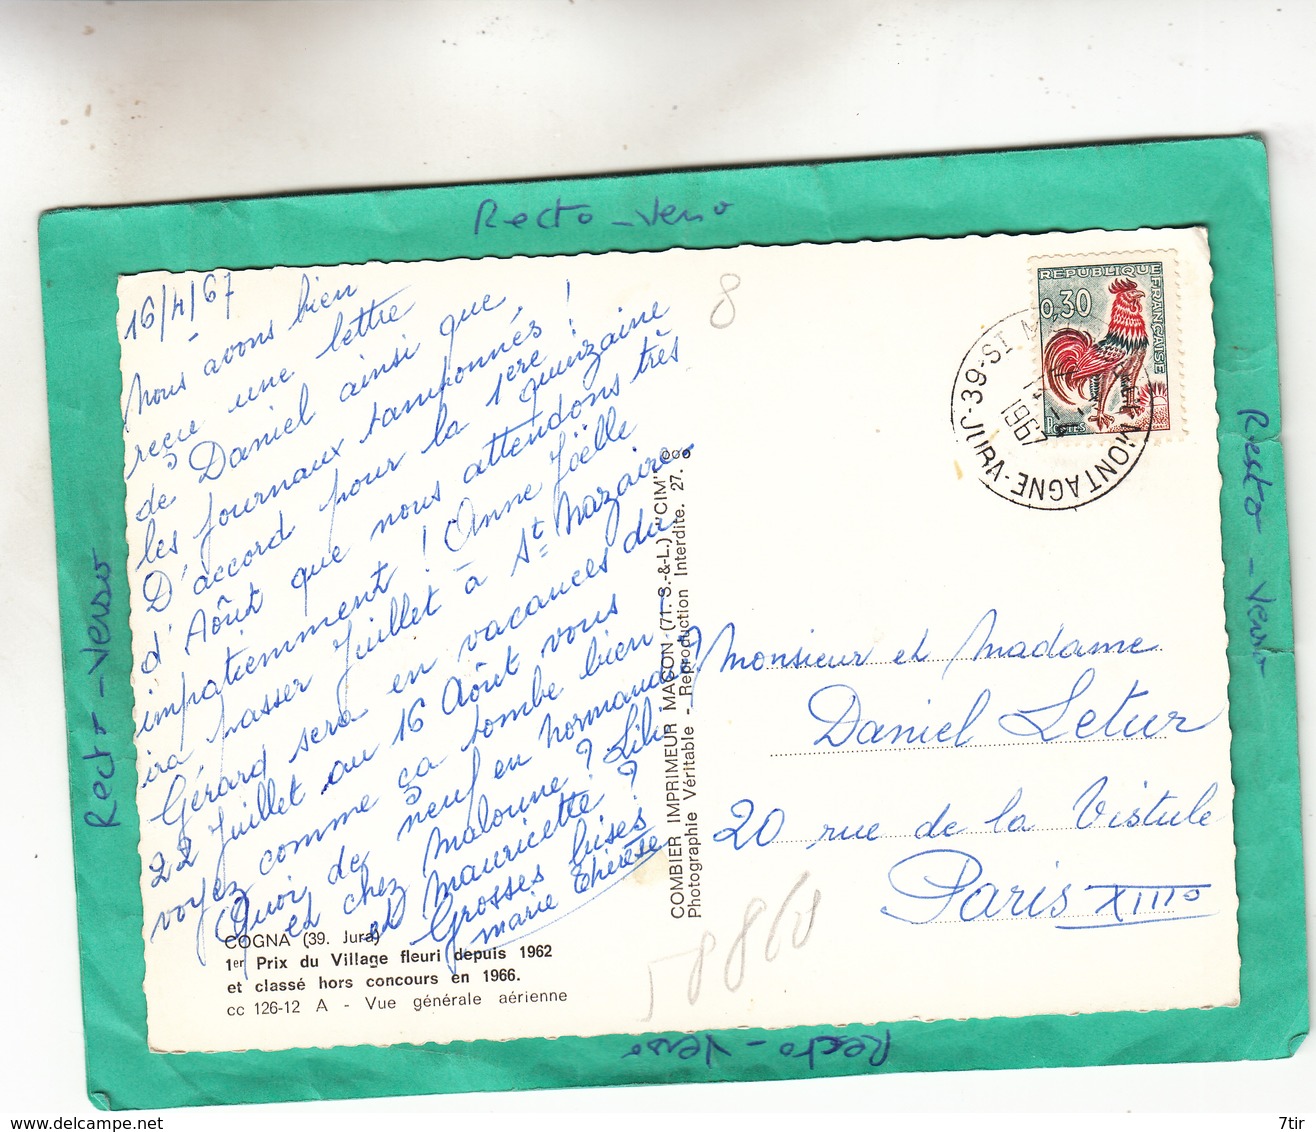 Recto - Verso
16/4/67
Nous avons bien
reçu une lettre
de Daniel ainsi que
les journaux tamponnés !
D'accord pour la 1ère quinzaine
d'Août que nous attendons très
impatiemment ! Anne Joëlle
ira passer Juillet à St Nazaire.
Gérard sera en vacances du
22 Juillet au 16 Août vous
voyez comme ça tombe bien !
Quoi de neuf en Normandie ?
et chez Maloune ? Lili
et Mauricette ?
Grosses bises
Marie Thérèse
COGNA (39. Jura)
1er Prix du Village fleuri depuis 1962
et classé hors concours en 1966.
cc 126-12 A - Vue générale aérienne
COMBIER IMPRIMEUR MACON (71. S.-&-L.) "CIM"
Photographie Véritable - Reproduction Interdite. 27.
8
REPUBLIQUE FRANÇAISE
0,30
POSTES
39-ST M
MONTAGNE-JURA
1967
Monsieur et Madame
Daniel Letur
20 rue de la Vistule
Paris XIIIo
58860
Recto - Verso
Recto - Verso
Recto - Verso
delcampe.net
7tir